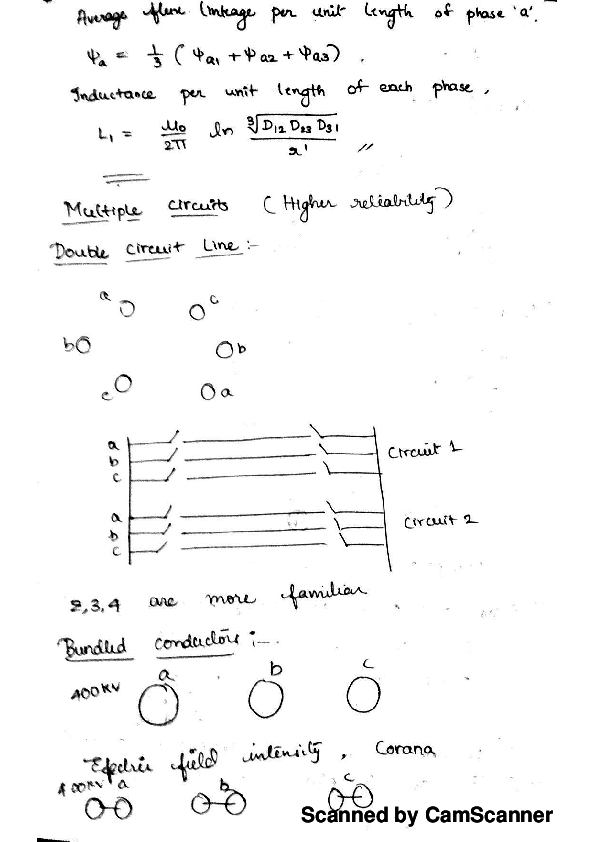 Average flux linkage per unit length of phase 'a'.
Ψa = 1/3 ( Ψa1 + Ψa2 + Ψa3 ) .
Inductance per unit length of each phase,
L1 = μ0/2π ln ∛(D12 D23 D31) / r' //
Multiple circuits (Higher reliability)
Double circuit Line :-
a c
b b
c a
a
b
c
Circuit 1
a
b
c
Circuit 2
2,3,4 are more familiar
Bundled conductors :-
400KV a b c
Electric field intensity, Corana
400KV a b c
Scanned by CamScanner